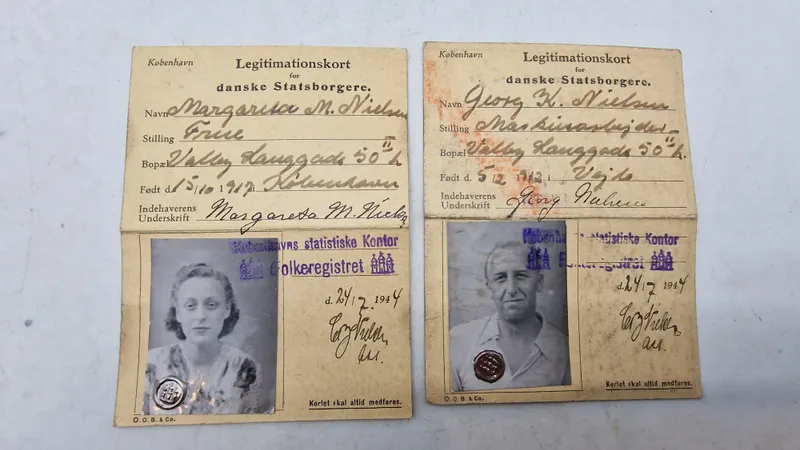 København
Legitimationskort
for
danske Statsborgere.
Navn Margareta M. Nielsen
Stilling Frue
Bopæl Valby Langgade 50 II h.
Født d. 15/10 1917 København
Indehaverens
Underskrift Margareta M. Nielsen
Københavns statistiske Kontor
Folkeregistret
d. 24/7 1944
Ass.
Kortet skal altid medføres.
O. O. B. & Co.
København
Legitimationskort
for
danske Statsborgere.
Navn Georg K. Nielsen
Stilling Maskinarbejder
Bopæl Valby Langgade 50 II h.
Født d. 5/2 1912 i Vejle
Indehaverens
Underskrift Georg Nielsen
Københavns statistiske Kontor
Folkeregistret
d. 24/7 1944
Ass.
Kortet skal altid medføres.
O. O. B. & Co.